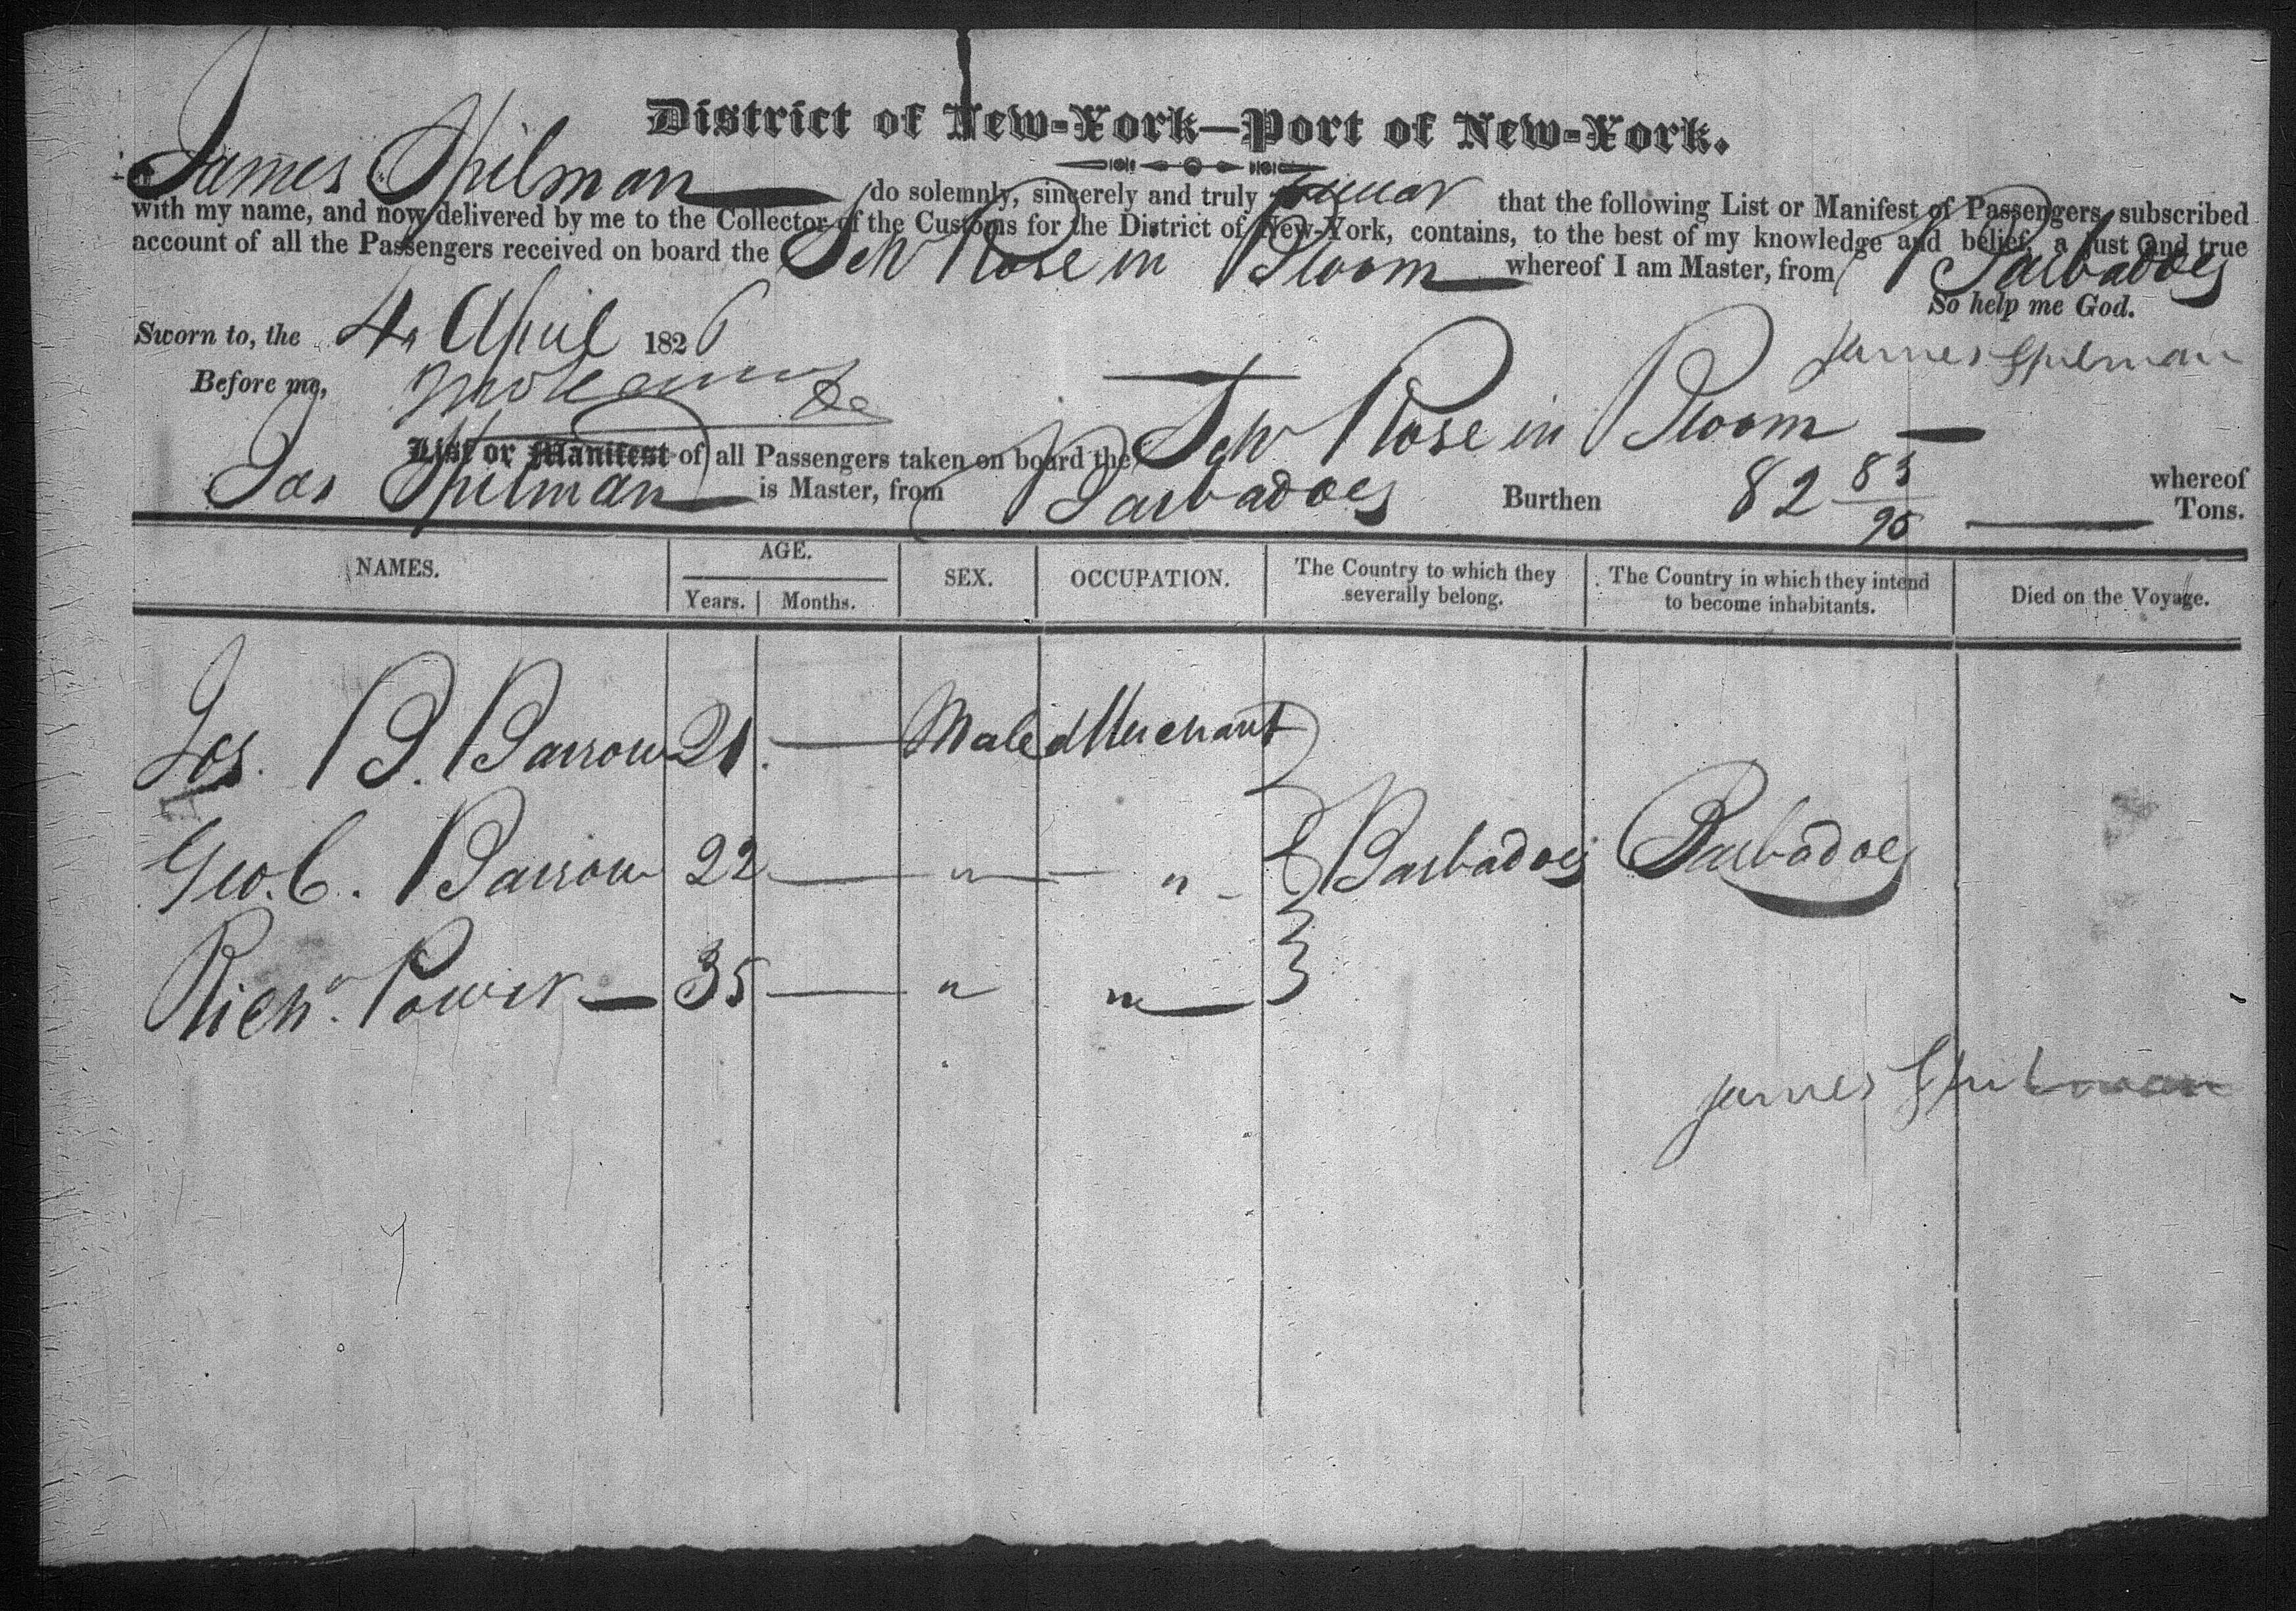 District of New-York—Port of New-York.
James Spilman do solemnly, sincerely and truly swear that the following List or Manifest of Passengers, subscribed
with my name, and now delivered by me to the Collector of the Customs for the District of New-York, contains, to the best of my knowledge and belief, a just and true
account of all the Passengers received on board the Schr Rose in Bloom whereof I am Master, from Barbadoes
So help me God.
Sworn to, the 4 April 1826
James Spilman
Before me,
List or Manifest of all Passengers taken on board the Schr Rose in Bloom whereof
Jas Spilman is Master, from Barbadoes Burthen 82 83/95 Tons.
NAMES. AGE. Years. Months. SEX. OCCUPATION. The Country to which they severally belong. The Country in which they intend to become inhabitants. Died on the Voyage.
Jos. B. Barrow 21. — Male Merchant
Geo. C. Barrow 22 — " — " - Barbadoes Barbadoes
Richd. Power — 35 — " "
James Spilman